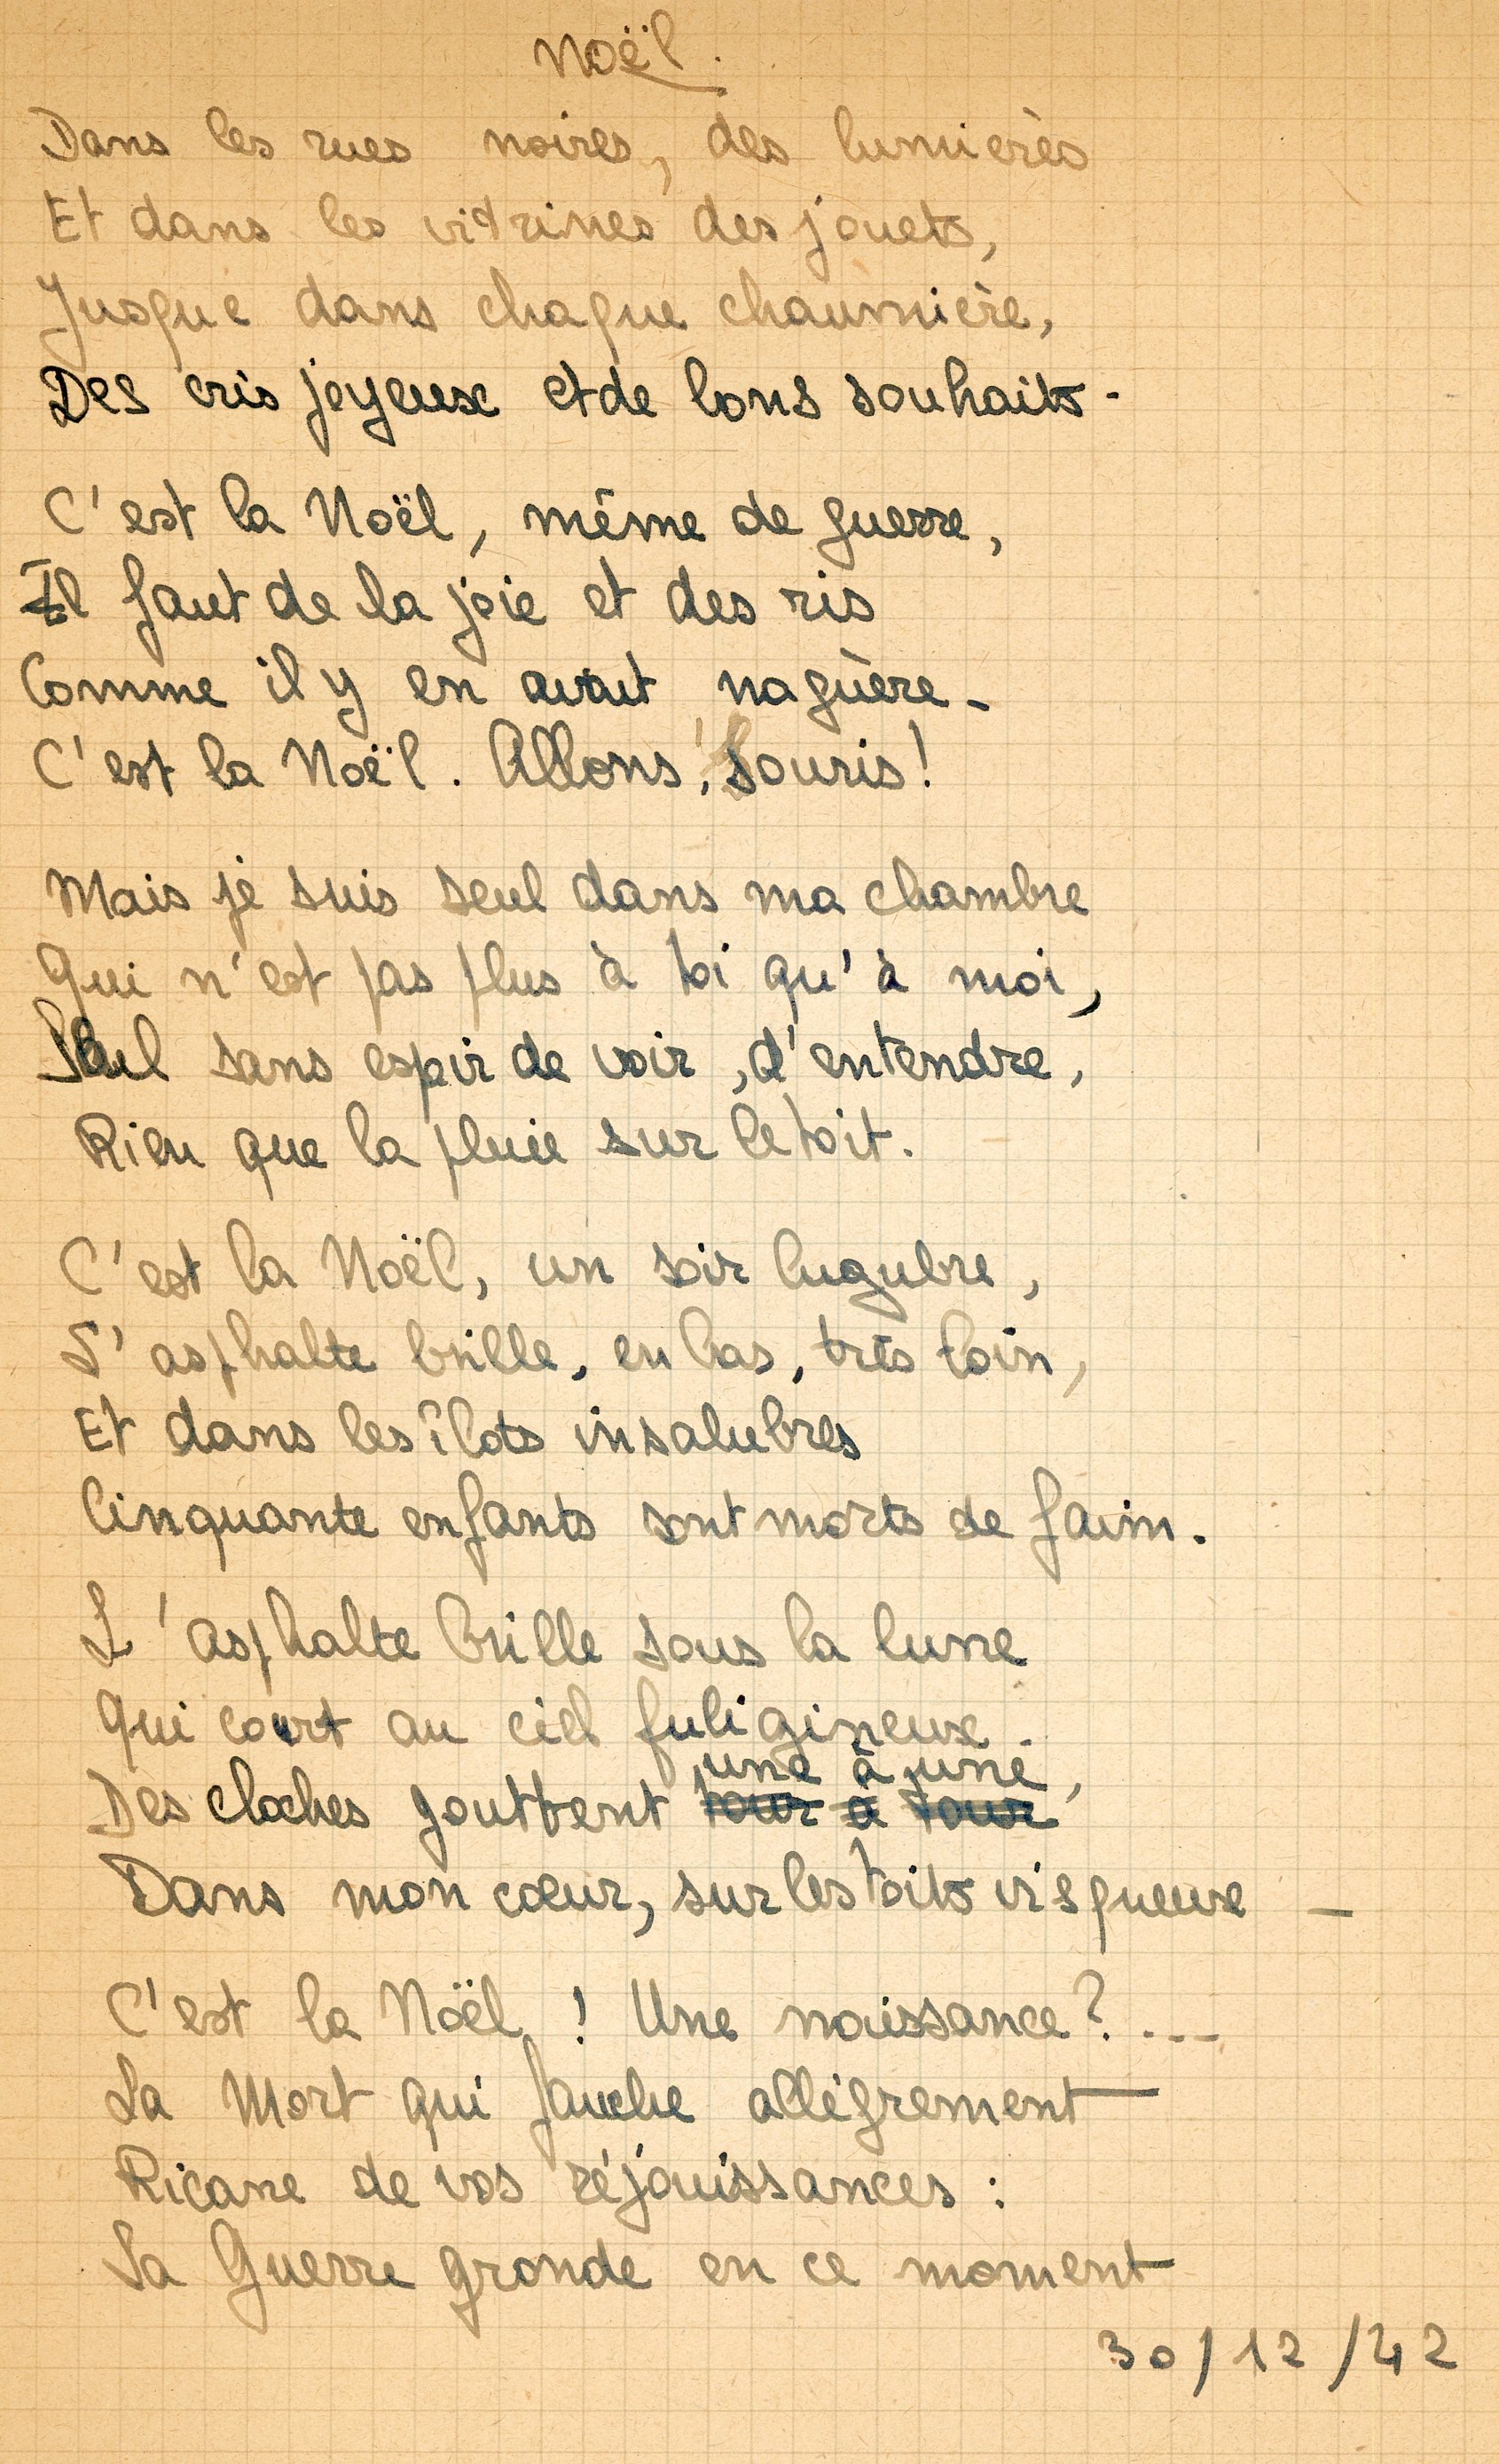 Noël.
Dans les rues noires, des lumières
Et dans les vitrines des jouets,
Jusque dans chaque chaumière,
Des cris joyeux et de bons souhaits.
C'est la Noël, même de guerre,
Il faut de la joie et des ris
Comme il y en avait naguère.
C'est la Noël. Allons, souris!
Mais je suis seul dans ma chambre
Qui n'est pas plus à toi qu'à moi,
Seul sans espoir de voir, d'entendre,
Rien que la pluie sur le toit.
C'est la Noël, un soir lugubre,
L'asphalte brille, en bas, très loin,
Et dans les îlots insalubres
Cinquante enfants sont morts de faim.
L'asphalte brille sous la lune
Qui court au ciel fuligineux.
une à une,
Des cloches gouttent tour à tour
Dans mon cœur, sur les toits visqueux —
C'est la Noël! Une naissance?...
La Mort qui fauche allégrement
Ricane de vos réjouissances:
La Guerre gronde en ce moment
30/12/42